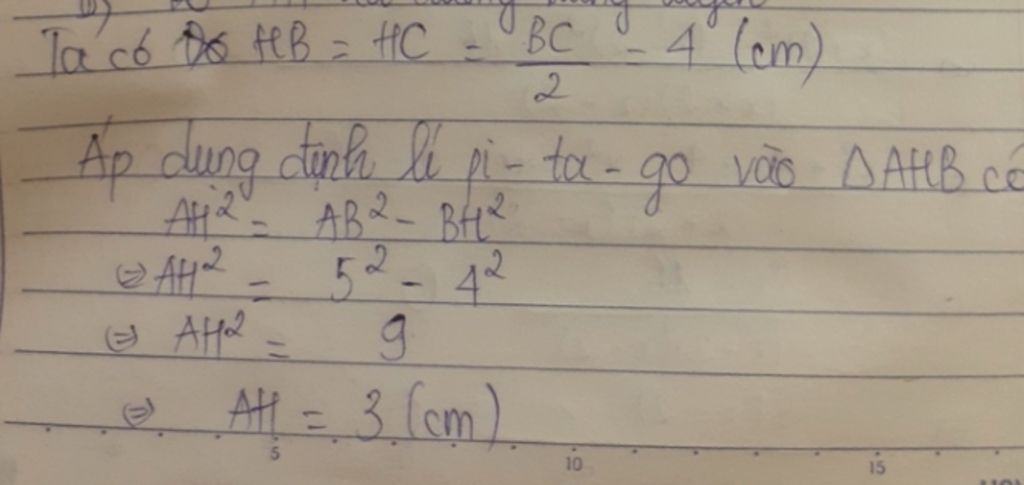 Ta có HB = HC = BC/2 = 4 (cm)
Áp dụng định lí pi-ta-go vào ΔAHB có
AH² = AB² - BH²
⇔ AH² = 5² - 4²
⇔ AH² = 9
⇔ AH = 3 (cm)
5 10 15